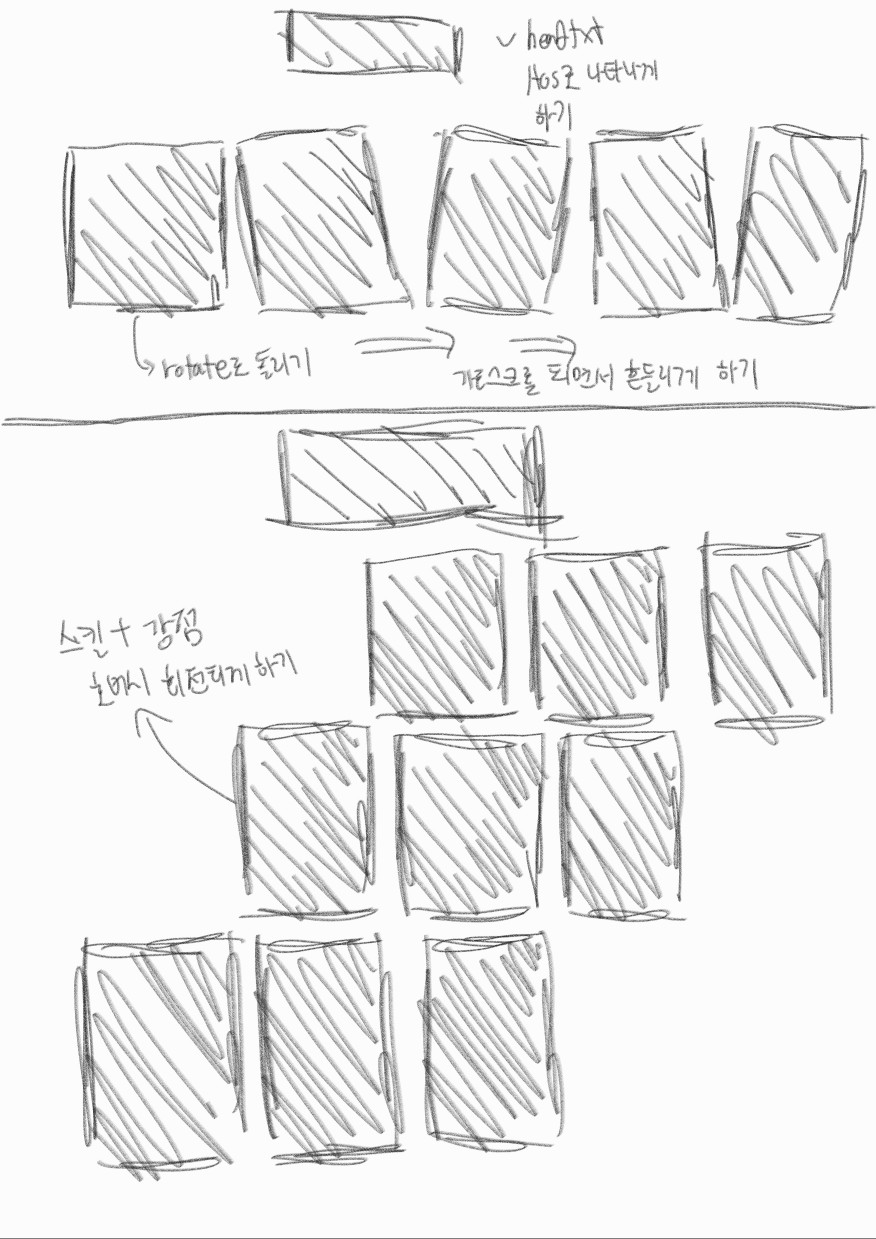 headtxt
AOS로 나타나게
하기
rotate로 돌리기
가로스크롤 되면서 흔들리게 하기
스킬+강점
호버시 회전되게하기